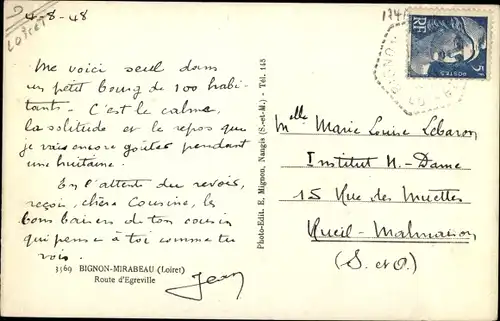 4-8-48
Loiret
Me voici seul dans
un petit bourg de 100 habi-
tants. C'est le calme,
la solitude et le repos que
je vais encore goûter pendant
une huitaine.
En l'attente du revoir,
reçois, chère Cousine, les
bons baisers de ton cousin
qui pense à toi comme tu
vois.
Jean
3569 BIGNON-MIRABEAU (Loiret)
Route d'Egreville
Photo-Edit. E. Mignon, Nangis (S.-et-M.) - Tél. 145
5F
RF
POSTES
Melle Marie Louise Lebaron
Institut N.-Dame
15 Rue des Muettes
Rueil-Malmaison
(S. et O.)